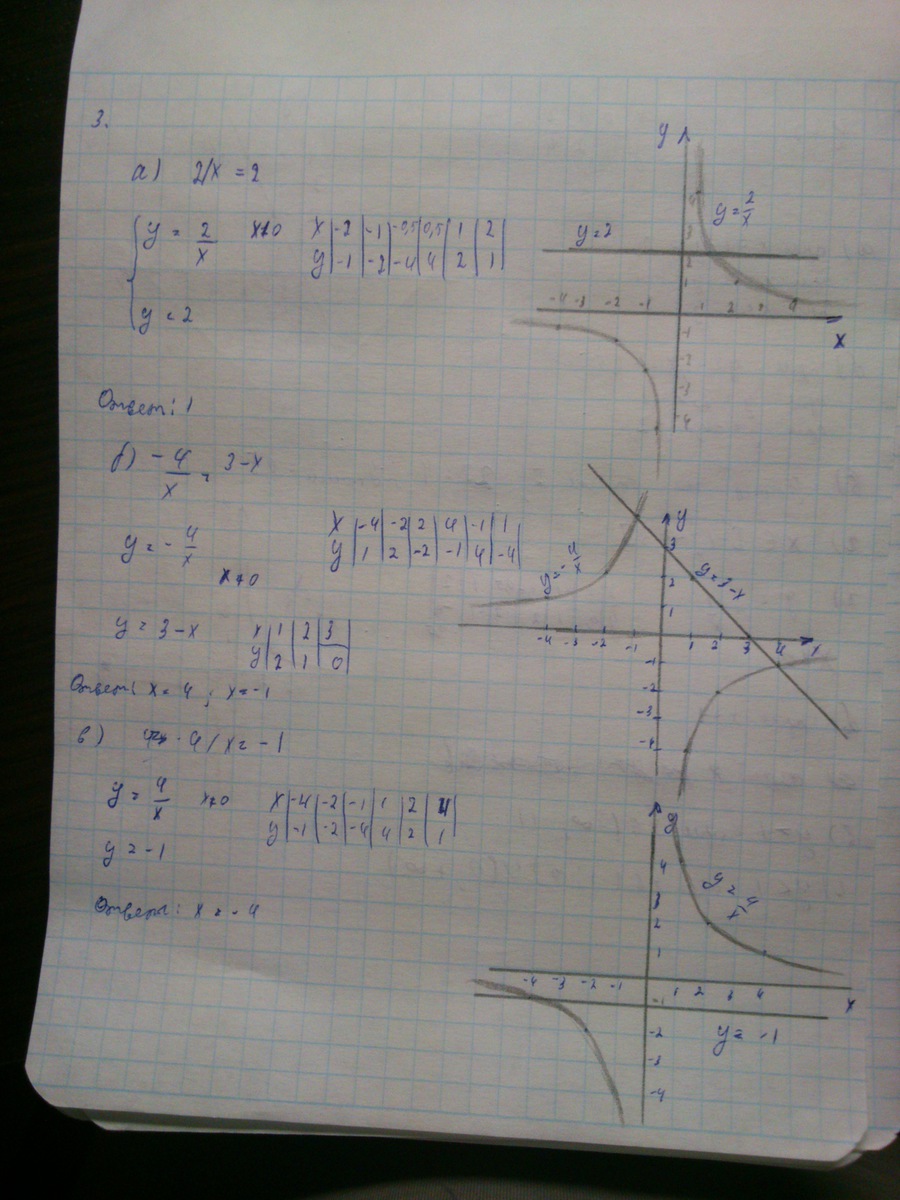 3.
а) 2/x = 2
y = 2/x x≠0
x -2 -1 -0,5 0,5 1 2
y -1 -2 -4 4 2 1
y = 2
Ответ: 1
y
y=2
y=2/x
4
3
2
1
-4 -3 -2 -1 1 2 4
x
-1
-2
-3
-4
б) -4/x = 3-x
y = -4/x
x≠0
x -4 -2 2 4 -1 1
y 1 2 -2 -1 4 -4
y = 3-x
x 1 2 3
y 2 1 0
Ответ: x=4; x=-1
y
y=-4/x
y=3-x
3
2
1
-4 -3 -2 -1 1 2 3 4 x
-1
-2
-3
-4
в) 4/x = -1
y = 4/x x≠0
x -4 -2 -1 1 2 4
y -1 -2 -4 4 2 1
y = -1
Ответ: x = -4
y
y = 4/x
4
3
2
1
-4 -3 -2 -1 1 2 3 4 x
-1
y = -1
-2
-3
-4